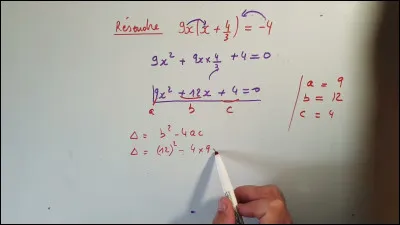 Résoudre 9x(x + 4/3) = -4
9x² + 9x × 4/3 + 4 = 0
9x² + 12x + 4 = 0
a b c
a = 9
b = 12
c = 4
Δ = b² - 4ac
Δ = (12)² - 4 × 9 ×